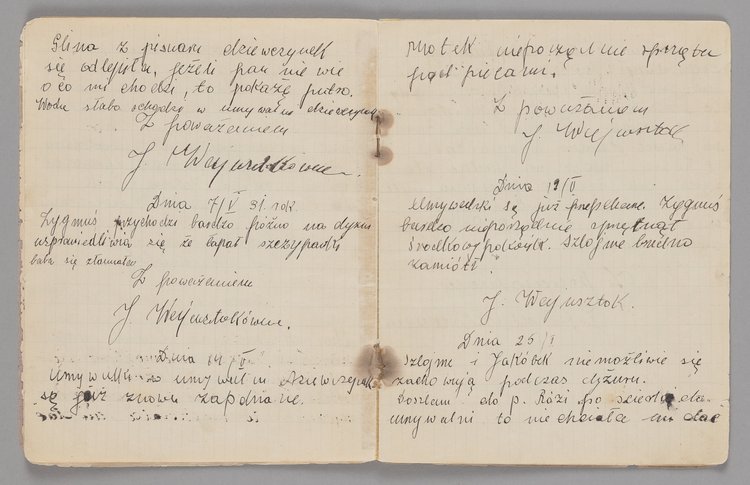 Glina z pisuaru dziewczynek
się odlepiła, jeżeli pan nie wie
o co mi chodzi, to pokażę jutro.
Woda słabo schodzi w umywalni dziewczynek
Z poważaniem
J. Wejsztokówna.
Dnia 7/V 31. rok.
Zygmuś przychodzi bardzo późno na dyżur
usprawiedliwia się że łapał szczypawki
baba się złamała.
Z poważaniem
J. Wejsztokówna.
Dnia 14/V
Umywalki w umywalni dziewczynek
są już znowu zapchane.
Motek nieporządnie sprząta
pod piecami.
Z poważaniem
J. Wejsztok
Dnia 19/V
Umywalki są już przepchane. Zygmuś
bardzo nieporządnie sprzątał
środkowy pokoik. Szlojme brudno
zamiótł.
J. Wejsztok.
Dnia 25/V
Szlojme i Jakóbek niemożliwie się
zachowują podczas dyżuru.
Poszłam do p. Rózi po do
umywalni to nie chciała mi dać